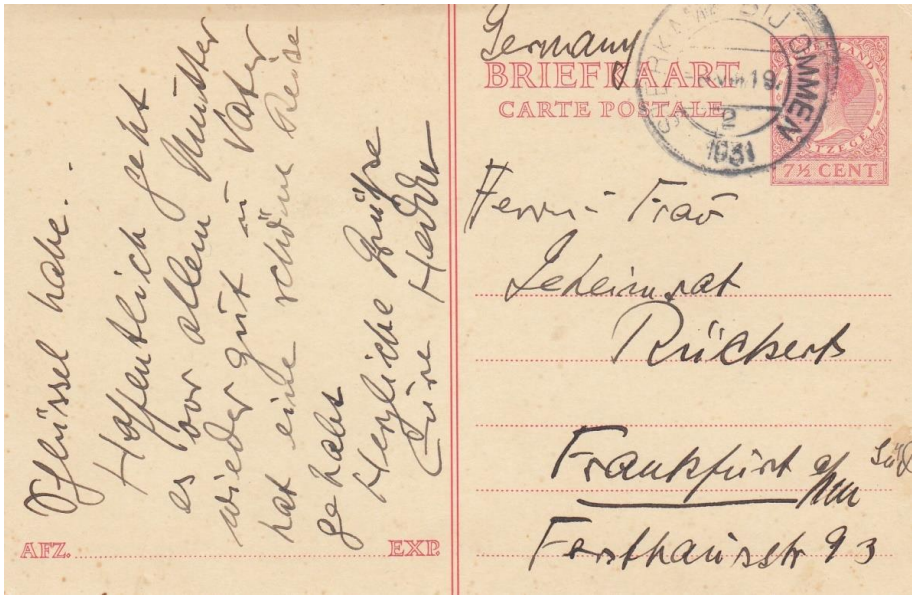 Schlüssel habe. -
Hoffentlich geht
es vor allem Mutter
wieder gut u Vater
hat eine schöne Reise
gehabt
Herzliche Grüße
Eure
AFZ. EXP.
Germany
BRIEFKAART
CARTE POSTALE
OMMEN
2
1931
7½ CENT
Herrn - Frau
Geheimrat
Rückert
Frankfurt a/
Süd
Forsthausstr 93